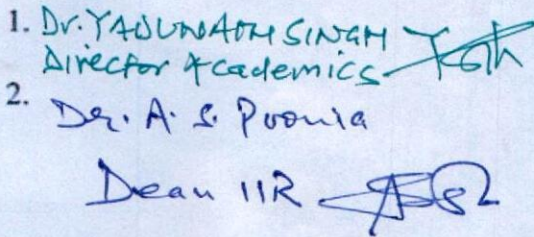 1. Dr. YADUNATH SINGH
Director Academics
2.
Dr. A. S. Poonia
Dean IIR